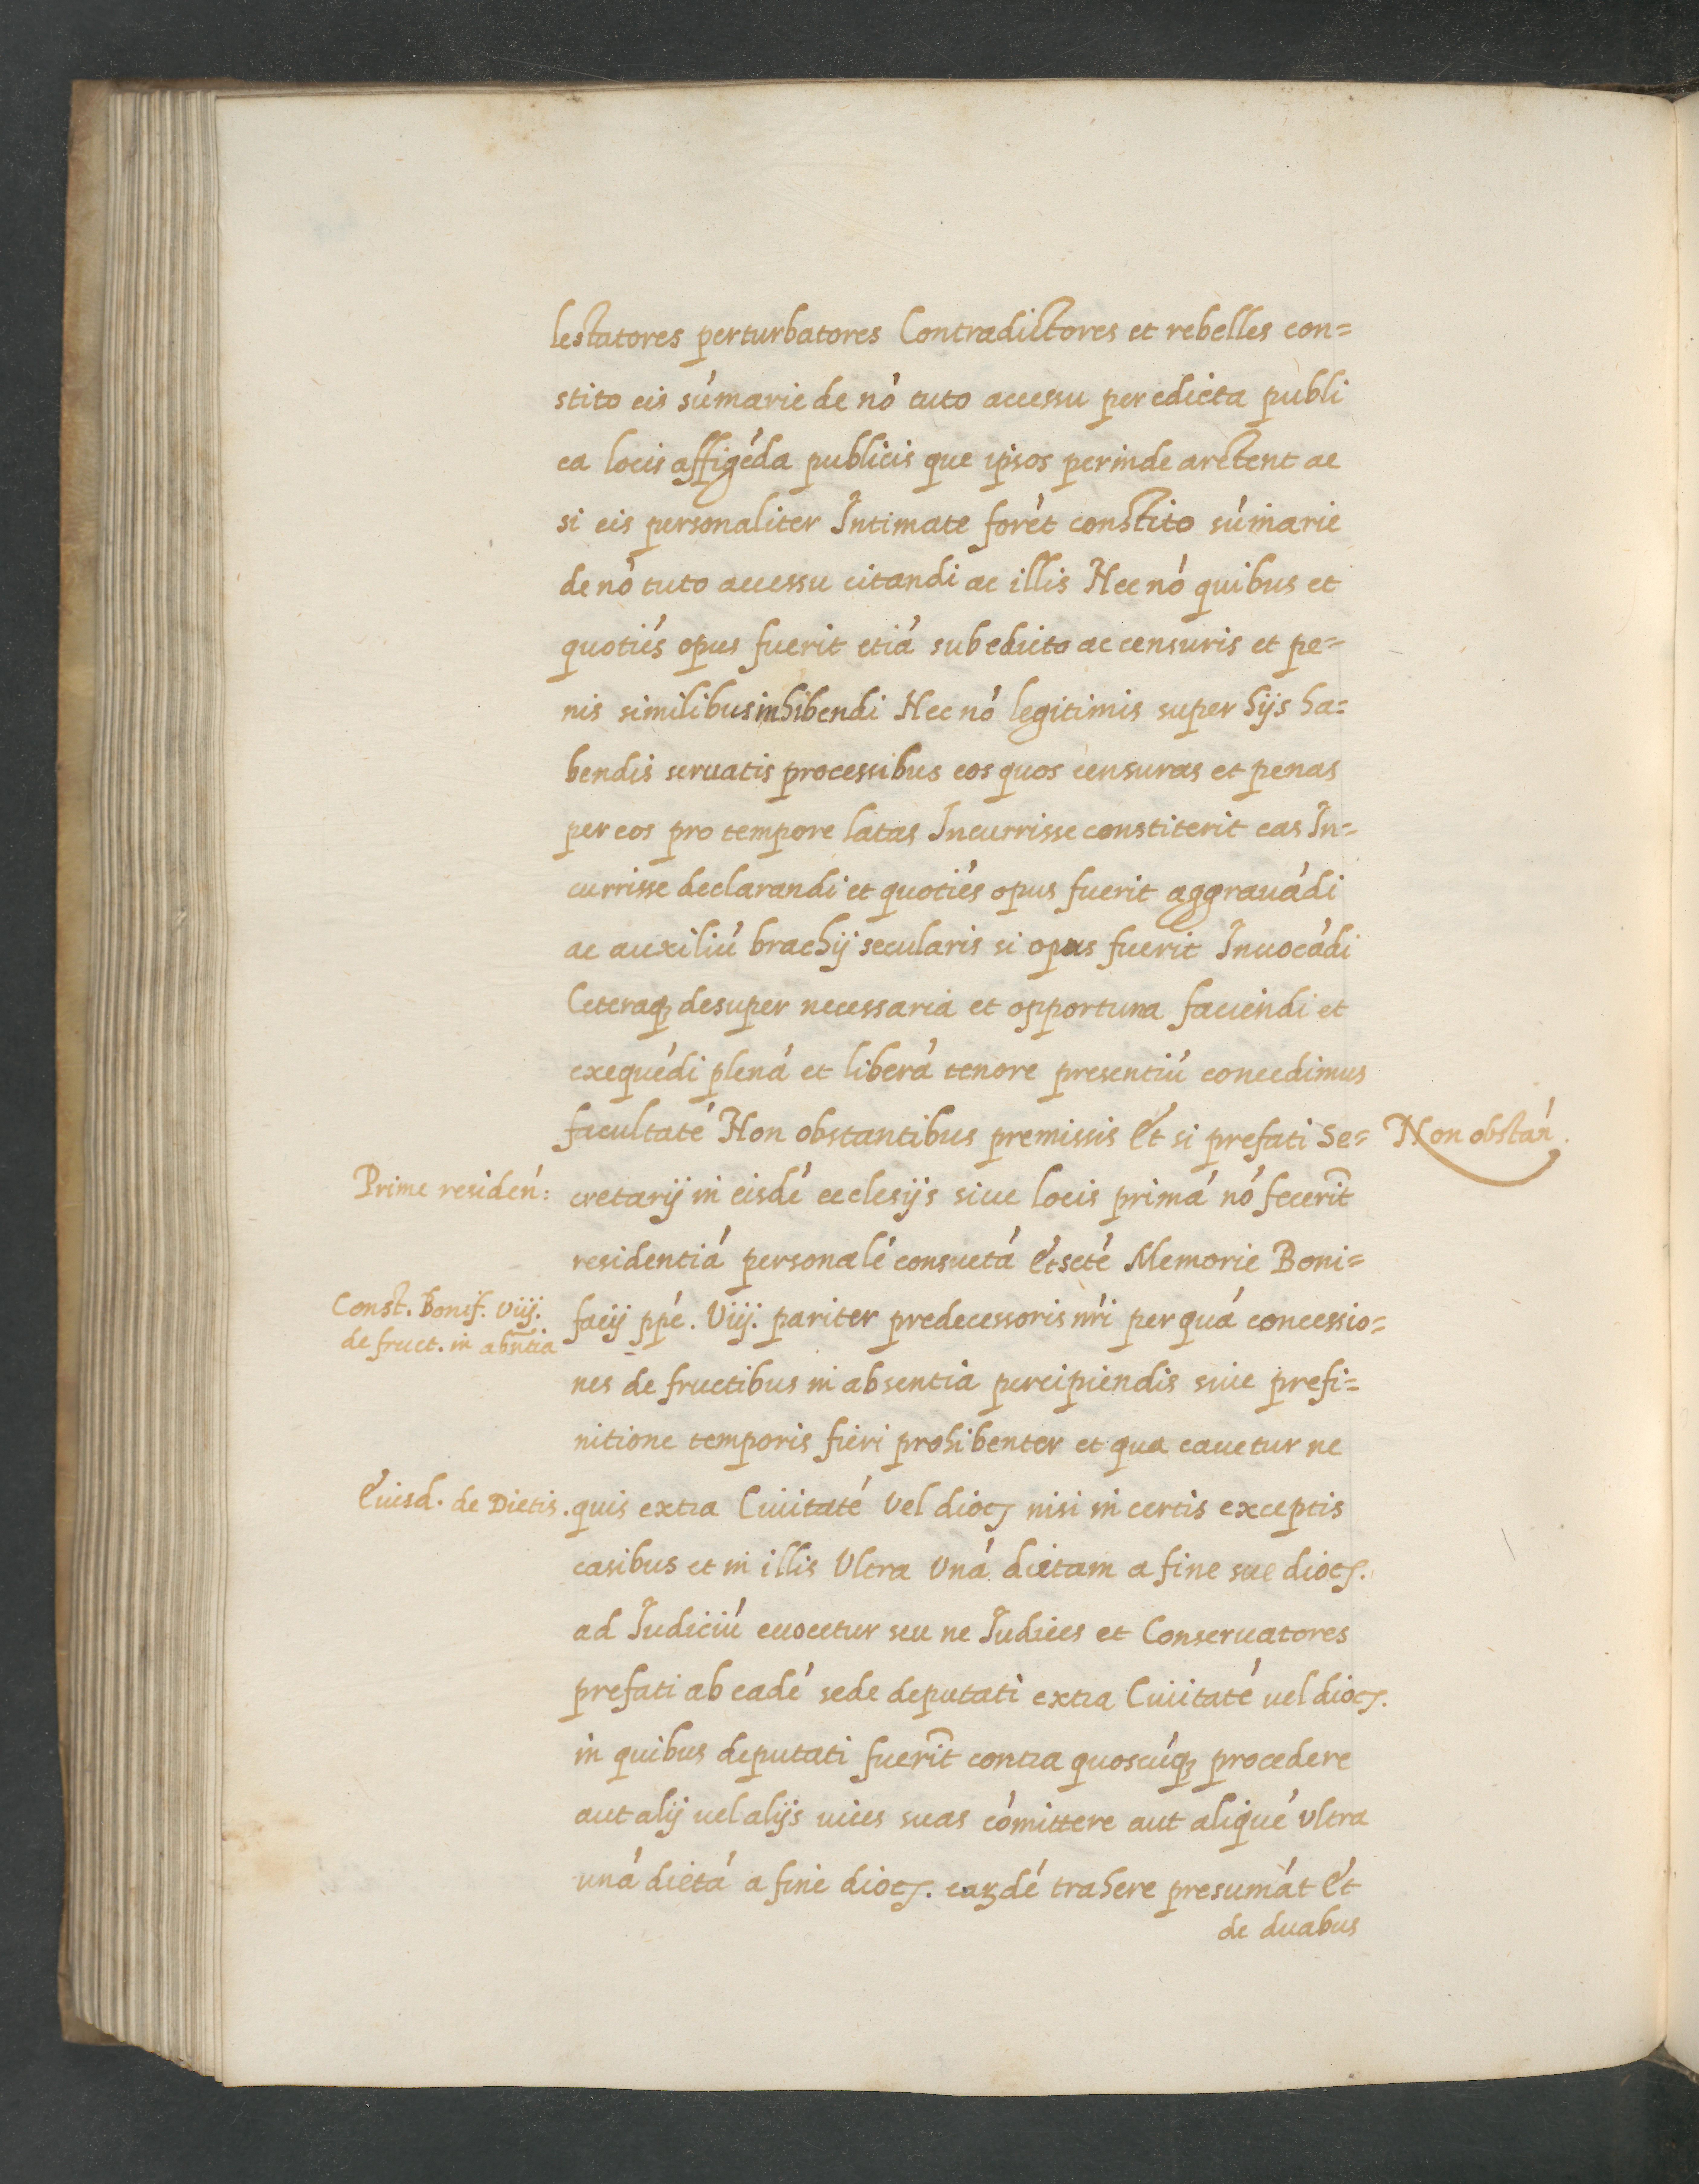 lestatores perturbatores Contradictores et rebelles con=
stito eis súmarie de nó tuto accessu per edicta publi
ca locis affigéda publicis que ipsos perinde arctent ac
si eis personaliter Intimate forét constito súmarie
de nó tuto accessu citandi ac illis Nec nó quibus et
quotiés opus fuerit etiá sub edicto ac censuris et pe=
nis similibus inhibendi Nec nó legitimis super hijs ha=
bendis seruatis processibus eos quos censuras et penas
per eos pro tempore latas Incurrisse constiterit eas In=
currisse declarandi et quotiés opus fuerit aggrauádi
ac auxiliú brachij secularis si opus fuerit Inuocádi
Ceteraqȝ desuper necessaria et opportuna faciendi et
exequédi plená et liberá tenore presentiú concedimus
facultaté Non obstantibus premissis Et si prefati Se=
Non obstán.
Prime residen:
cretarij in eisdé ecclesijs siue locis primá nó fecerīt
residentiá personalé consuetá Et scté Memorie Boni=
Const. Bonif. Viij.
de fruct. in abn̄tia
facij ppé. Viij. pariter predecessoris nr̃i per quá concessio=
nes de fructibus in absentia percipiendis siue prefi=
nitione temporis fieri prohibenter et qua cauetur ne
Eiusd. de Dietis.
quis extra Ciuitaté Vel dioc̨ nisi in certis exceptis
casibus et in illis Vltra Vná dietam a fine sue dioc̨.
ad Iudiciú euocetur seu ne Iudices et Conseruatores
prefati ab eadé sede deputati extra Ciuitaté uel dioc̨.
in quibus deputati fuerīt contra quoscúqȝ procedere
aut alij uel alijs uices suas cómittere aut aliqué vltra
uná dietá a fine dioc̨. earꝝdé trahere presumát Et
de duabus